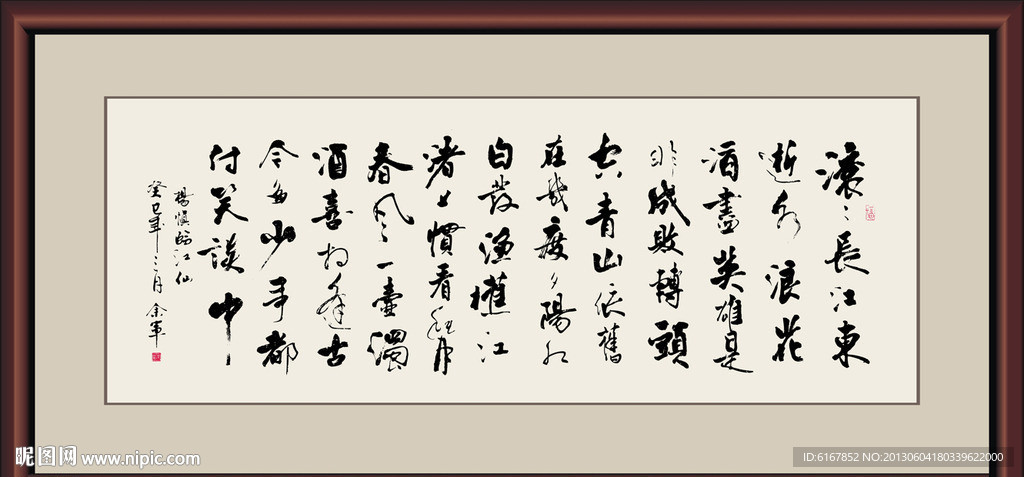 滚〻長江東
逝水浪花
淘盡英雄是
非成敗轉頭
空青山依舊
在幾度夕陽紅
白發漁樵江
渚上慣看秋月
春風一壺濁
酒喜相逢古
今多少事都
付笑談中
楊慎臨江仙
癸巳年三月 余軍
昵图网 www.nipic.com
ID:6167852 NO:20130604180339622000